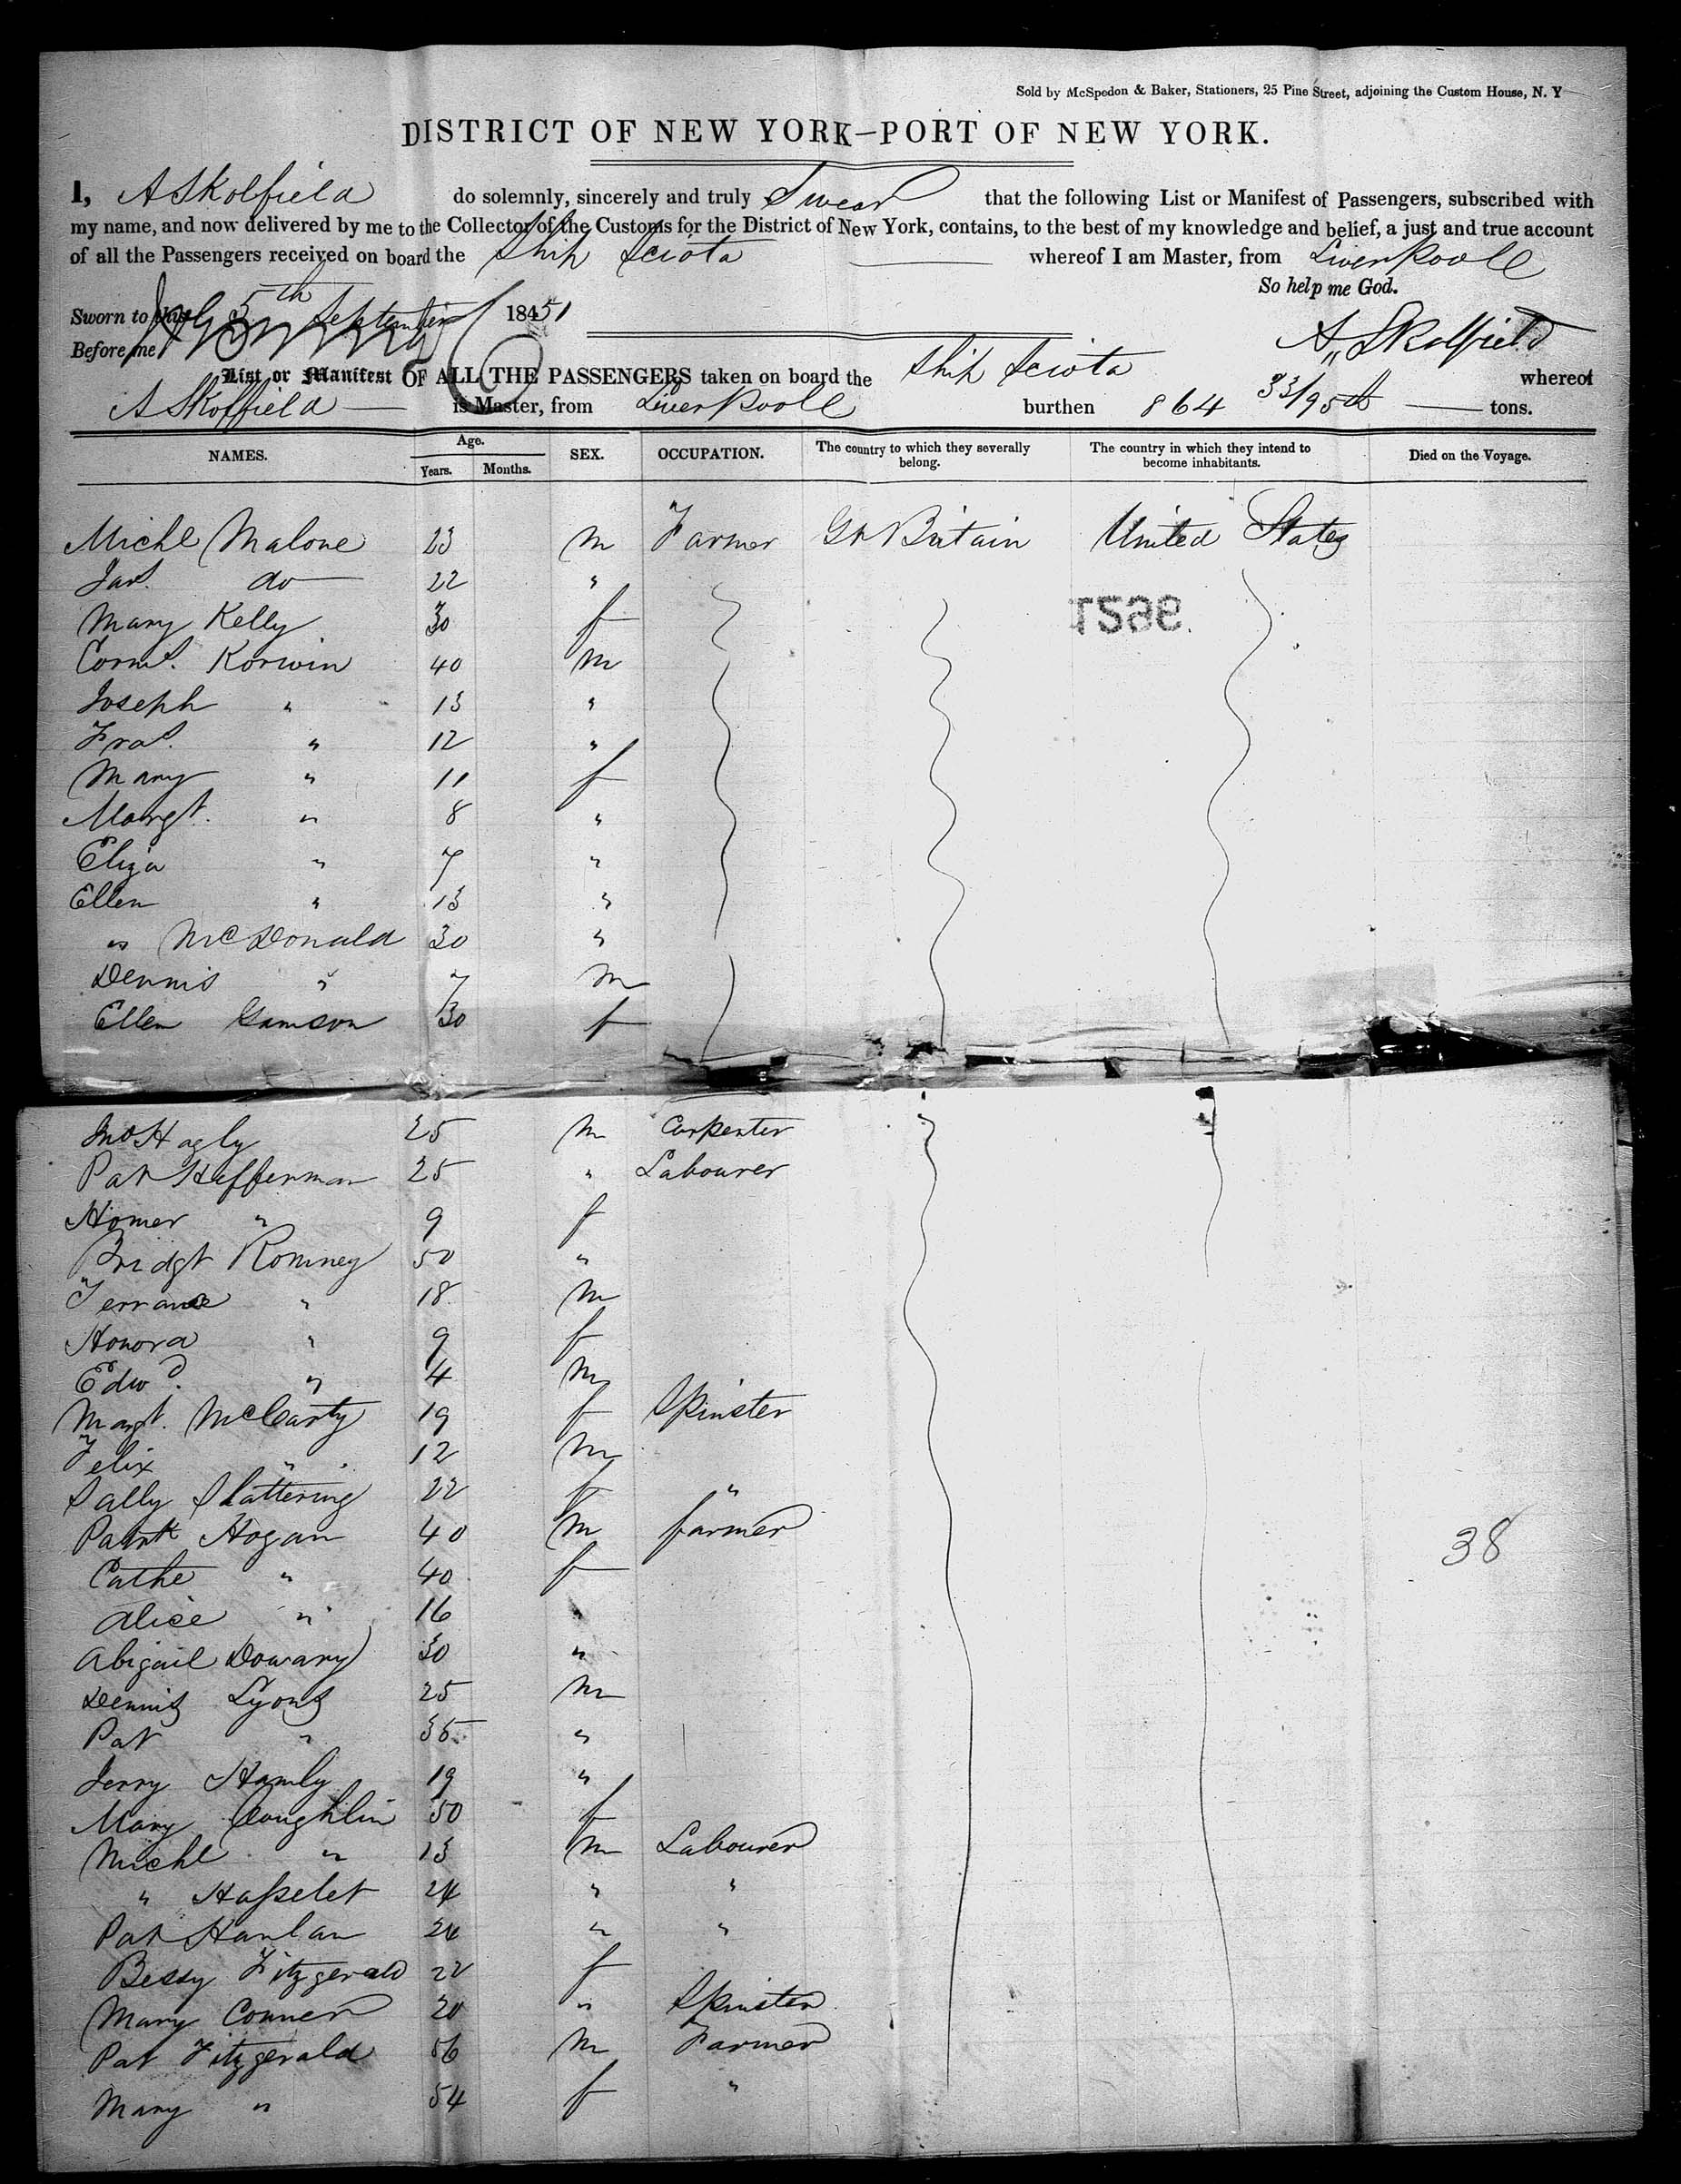 Sold by McSpedon & Baker, Stationers, 25 Pine Street, adjoining the Custom House, N. Y
DISTRICT OF NEW YORK—PORT OF NEW YORK.
I, A Skolfield do solemnly, sincerely and truly Swear that the following List or Manifest of Passengers, subscribed with
my name, and now delivered by me to the Collector of the Customs for the District of New York, contains, to the best of my knowledge and belief, a just and true account
of all the Passengers received on board the Ship Sciota whereof I am Master, from Liverpoole
So help me God.
Sworn to this 5th September 18451
Before me
A, Skolfield
List or Manifest OF ALL THE PASSENGERS taken on board the Ship Sciota whereof
A Skolfield is Master, from Liverpoole burthen 864 33/95th tons.
NAMES. Age. Years. Months. SEX. OCCUPATION. The country to which they severally belong. The country in which they intend to become inhabitants. Died on the Voyage.
Michl Malone 23 m Farmer Gt Britain United States
Jas. do 22 "
Mary Kelly 30 f
Corns. Korwin 40 m
Joseph " 13 "
Fras. " 12 "
Mary " 11 f
Margt. " 8 "
Eliza " 7 "
Ellen " 13 "
" McDonald 30 "
Dennis " 7 m
Ellen Gamson 30 f
Jno Hagly 25 m Carpenter
Pat Hefferman 25 " Labourer
Homer " 9 f
Bridgt Romney 50 "
Terrance " 18 m
Honora " 9 f
Edwd. " 4 m
Margt. McCarty 19 f Spinster
Felix " 12 m
Sally Slattering 22 f "
Patrk Hogan 40 m farmer
38
Cathe " 40 f
Alice " 16 "
Abigail Dowany 30 "
Dennis Lyons 25 m
Pat " 35 "
Jerry Hamly 19 "
Mary Coughlin 50 f
Michl " 13 m Labourer
" Hasselet 24 " "
Pat Hanlan 24 " "
Bessy Fitzgerald 22 f
Mary Conner 20 " Spinster
Pat Fitzgerald 56 m Farmer
Mary " 54 f "